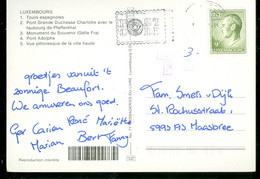 LUXEMBOURG
1. Tours espagnoles
2. Pont Grande Duchesse Charlotte avec le
faubourg de Pfaffenthal
3. Monument du Souvenir (Gelle Fra)
4. Pont Adolphe
5. Vue pittoresque de la ville haute
groetjes vanuit 't
zonnige Beaufort.
We amuseren ons goed.
Ger Carien René Mariëtte
Marian Bert Fanny
Reproduction interdite
Fam. Smets v Dijk
St. Rochusstraat
5993 AS Maasbree